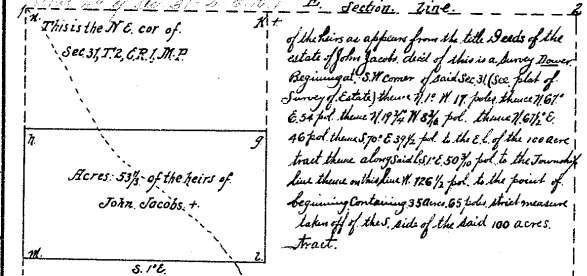 E. Section. Line.
1
n
K +
2
This is the N E. cor of.
Sec 31, T. 2, E.R. 1. M.P.
h
g
Acres: 53 1/3. of the heirs of.
John. Jacobs. +.
m.
i.
S. 1° E.
of the heirs as appears from the title Deeds of the
estate of John Jacobs, dec'd of this is a survey Dower.
Beginning at. S.W. corner of said Sec. 31 (See plat of
Survey of Estate) thence N. 1° W. 17 poles, thence N. 67°
E. 54 pol. thence N. 19 3/4° W pol. thence N. 67 1/2° E.
46 pol. thence S. 70° E 39 1/2 pol. to the E. L. of the 100 acre
tract thence along said L S. 1° E. 50 3/10 pol. to the Township
line thence on this line W. 126 1/2 pol. to the point of
beginning. Containing 35 acres. 65 poles, strict measure
taken off of the S. side of the said 100 acres.
Tract.